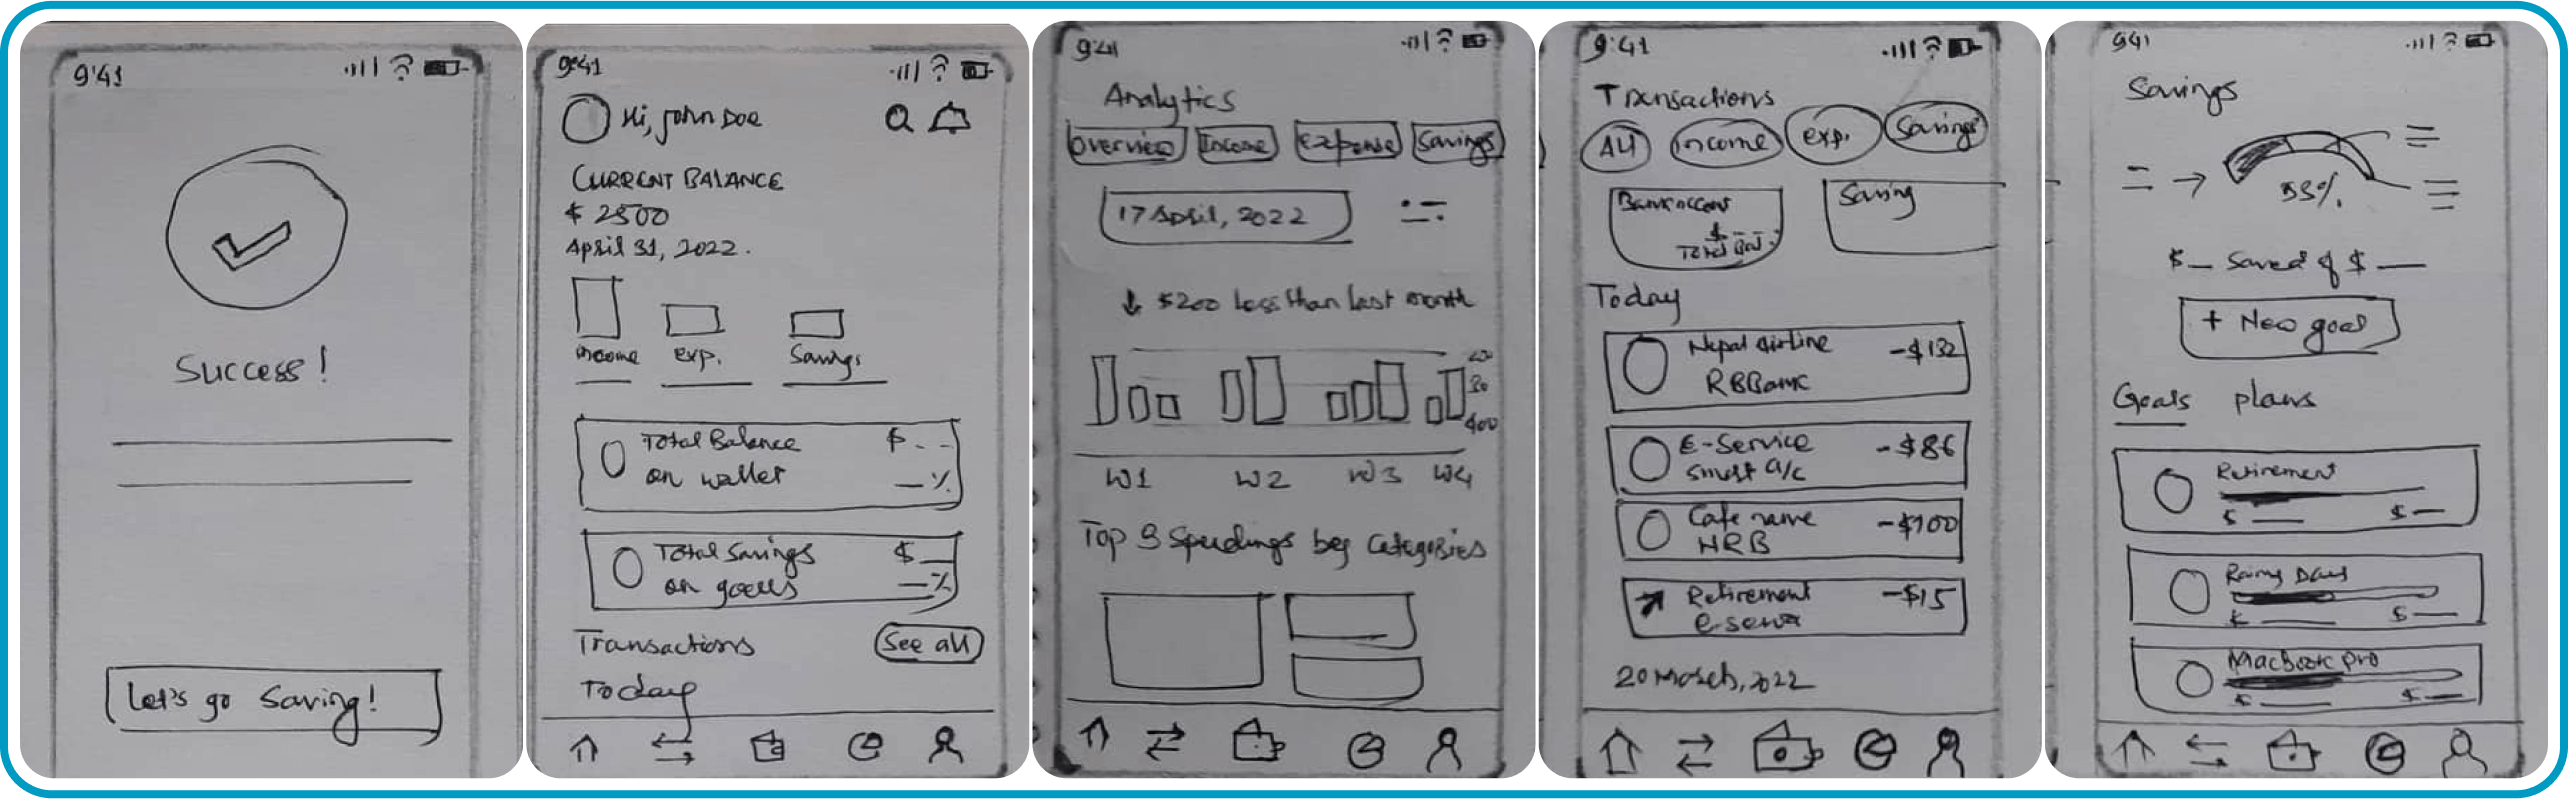 9:41
Success!
Let's go Saving!
9:41
Hi, John Doe
CURRENT BALANCE
$ 2500
April 31, 2022.
income exp. Savings
Total Balance $ --
on wallet — %
Total Savings $ —
on goals — %
Transactions See all
Today
9:41
Analytics
Overview Income Expense Savings
17 April, 2022
↓ $200 less than last month
400
W1 W2 W3 W4
Top 3 Spendings by Categories
9:41
Transactions
All income exp. Savings
Saving
$ ---
Total Bal.
Today
Nepal Airline -$132
RBBank
E-Service -$86
Smart a/c
Cafe name -$100
NRB
Retirement -$15
20 March, 2022
941
Savings
$ — Saved of $ —
+ New goal
Goals plans
Retirement
$ — $ —
Rainy Days
$ — $ —
Macbook pro
$ — $ —